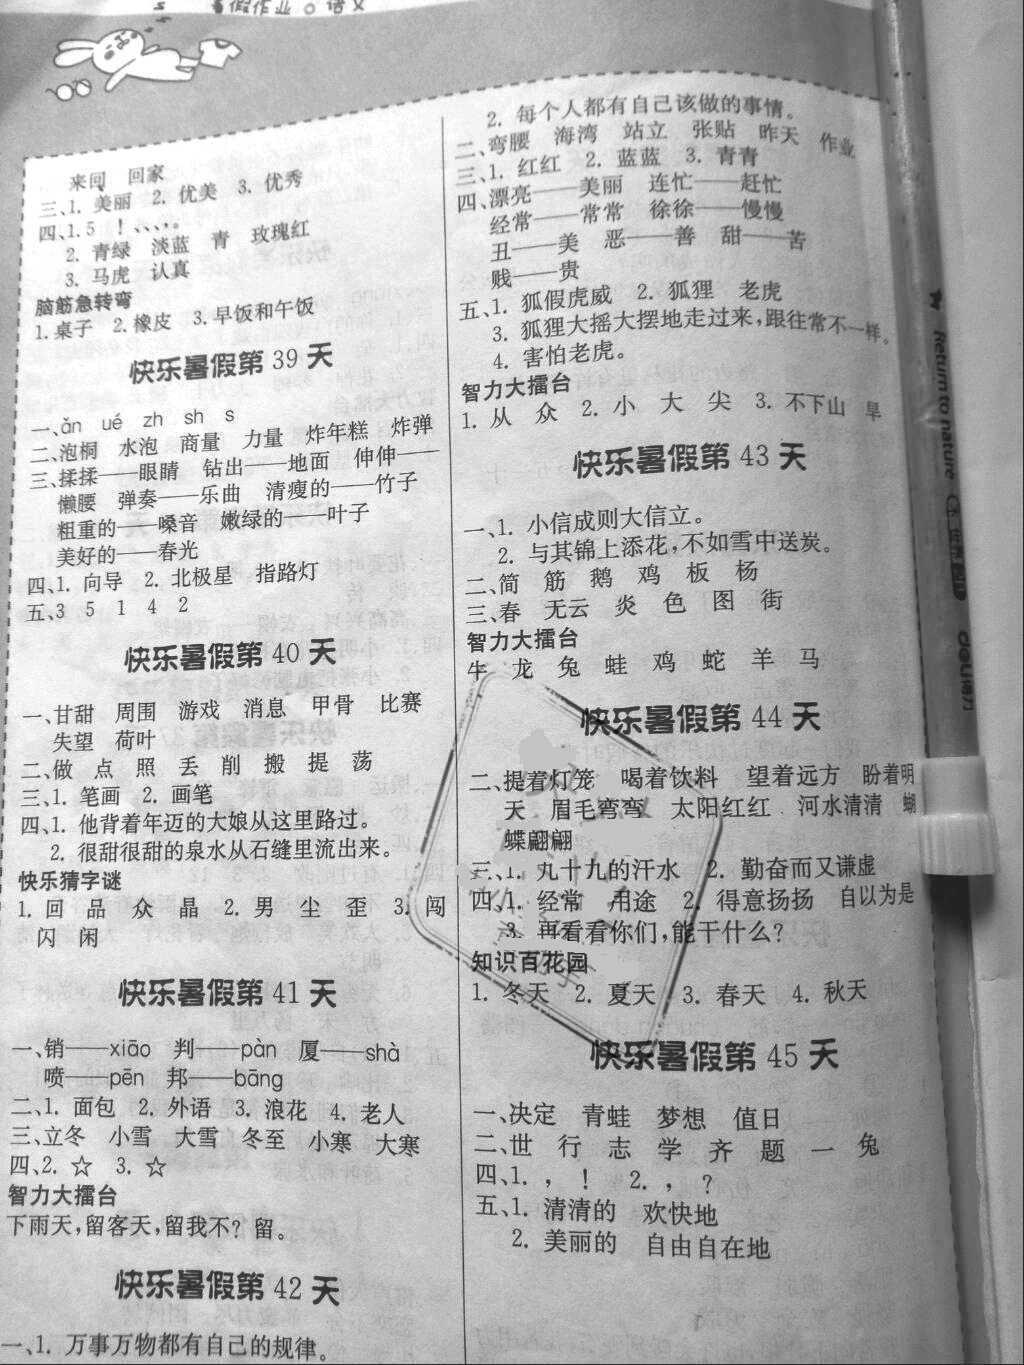 暑假作业 语文
来回 回家
三、1. 美丽 2. 优美 3. 优秀
四、1. 5 ！、、、，。
2. 青绿 淡蓝 青 玫瑰红
3. 马虎 认真
脑筋急转弯
1. 桌子 2. 橡皮 3. 早饭和午饭
快乐暑假第 39 天
一、ǎn ué zh sh s
二、泡桐 水泡 商量 力量 炸年糕 炸弹
三、揉揉——眼睛 钻出——地面 伸伸——
懒腰 弹奏——乐曲 清瘦的——竹子
粗重的——嗓音 嫩绿的——叶子
美好的——春光
四、1. 向导 2. 北极星 指路灯
五、3 5 1 4 2
快乐暑假第 40 天
一、甘甜 周围 游戏 消息 甲骨 比赛
失望 荷叶
二、做 点 照 丢 削 搬 提 荡
三、1. 笔画 2. 画笔
四、1. 他背着年迈的大娘从这里路过。
2. 很甜很甜的泉水从石缝里流出来。
快乐猜字谜
1. 回 品 众 晶 2. 男 尘 歪 3. 闯
闪 闲
快乐暑假第 41 天
一、销——xiāo 判——pàn 厦——shà
喷——pēn 邦——bāng
二、1. 面包 2. 外语 3. 浪花 4. 老人
三、立冬 小雪 大雪 冬至 小寒 大寒
四、2. ☆ 3. ☆
智力大擂台
下雨天，留客天，留我不？留。
快乐暑假第 42 天
一、1. 万事万物都有自己的规律。
2. 每个人都有自己该做的事情。
二、弯腰 海湾 站立 张贴 昨天 作业
三、1. 红红 2. 蓝蓝 3. 青青
四、漂亮——美丽 连忙——赶忙
经常——常常 徐徐——慢慢
丑——美 恶——善 甜——苦
贱——贵
五、1. 狐假虎威 2. 狐狸 老虎
3. 狐狸大摇大摆地走过来，跟往常不一样。
4. 害怕老虎。
智力大擂台
1. 从 众 2. 小 大 尖 3. 不下山 早
快乐暑假第 43 天
一、1. 小信成则大信立。
2. 与其锦上添花，不如雪中送炭。
二、简 筋 鹅 鸡 板 杨
三、春 无云 炎 色 图 街
智力大擂台
牛 龙 兔 蛙 鸡 蛇 羊 马
快乐暑假第 44 天
二、提着灯笼 喝着饮料 望着远方 盼着明
天 眉毛弯弯 太阳红红 河水清清 蝴
蝶翩翩
三、1. 丸十九的汗水 2. 勤奋而又谦虚
四、1. 经常 用途 2. 得意扬扬 自以为是
3. 再看看你们，能干什么？
知识百花园
1. 冬天 2. 夏天 3. 春天 4. 秋天
快乐暑假第 45 天
一、决定 青蛙 梦想 值日
二、世 行 志 学 齐 题 一 兔
四、1. ， ！ 2. ， ？
五、1. 清清的 欢快地
2. 美丽的 自由自在地
Return to nature
deli得力